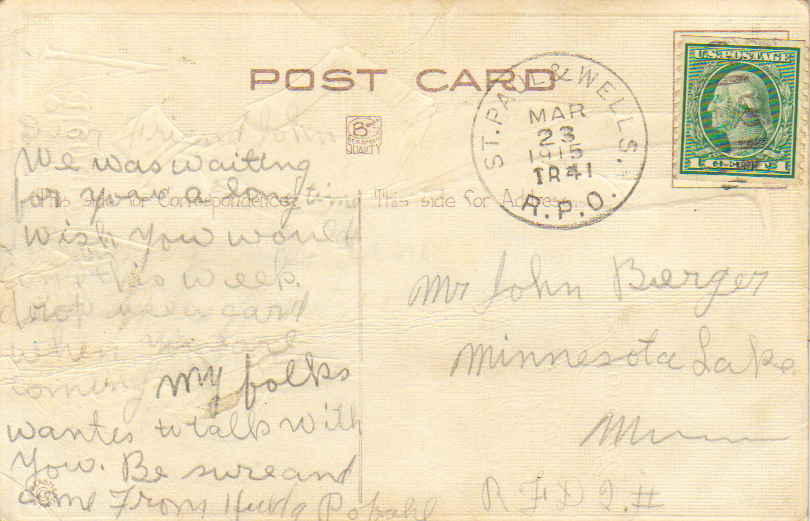 POST CARD
U.S. POSTAGE
ST. PAUL & WELLS.
MAR
23
1915
TR 41
R.P.O.
B
QUALITY
This Side for Correspondence
This side for Address
Dear Friend John
We was waiting
for you a long time
Wish you would
this week.
drop us a card
when you are
coming My folks
wantes to talk with
You. Be sure and
come From Hulda
Mr John Berger
Minnesota Lake
Minn
R F D 2. #